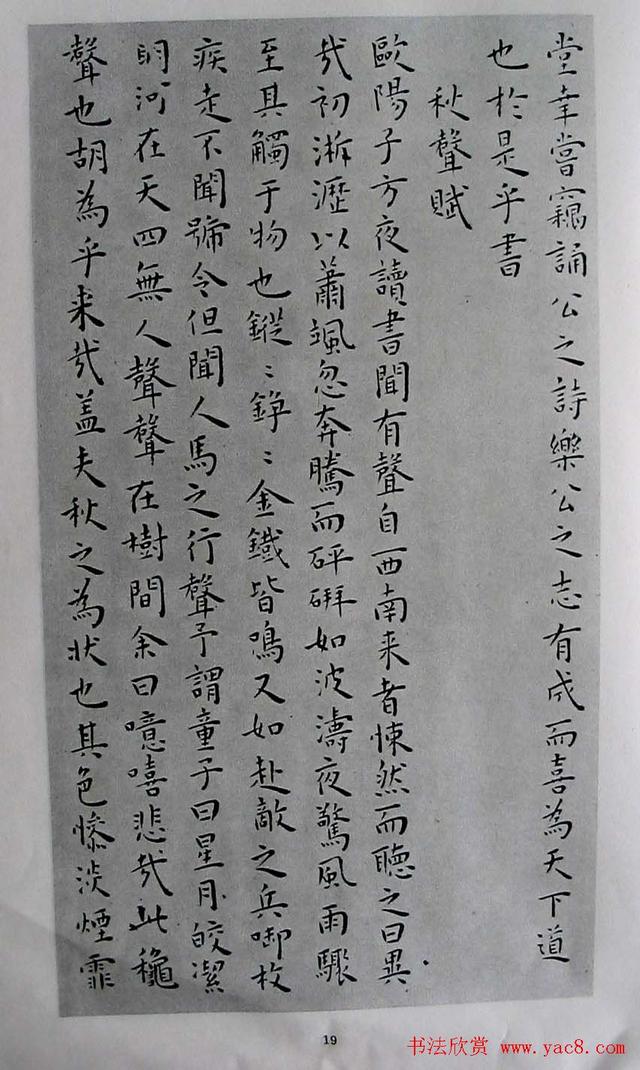 堂幸嘗竊誦公之詩樂公之志有成而喜為天下道
也於是乎書
秋聲賦
歐陽子方夜讀書聞有聲自西南来者悚然而聽之曰異
哉初淅瀝以蕭颯忽奔騰而砰湃如波濤夜驚風雨驟
至其觸于物也鏦〻錚〻金鐵皆鳴又如赴敵之兵啣枚
疾走不聞號令但聞人馬之行聲予謂童子曰星月皎潔
明河在天四無人聲聲在樹間余曰噫嘻悲哉此穐
聲也胡為乎来哉盖夫秋之為状也其色慘淡煙霏
19
书法欣赏 www.yac8.com